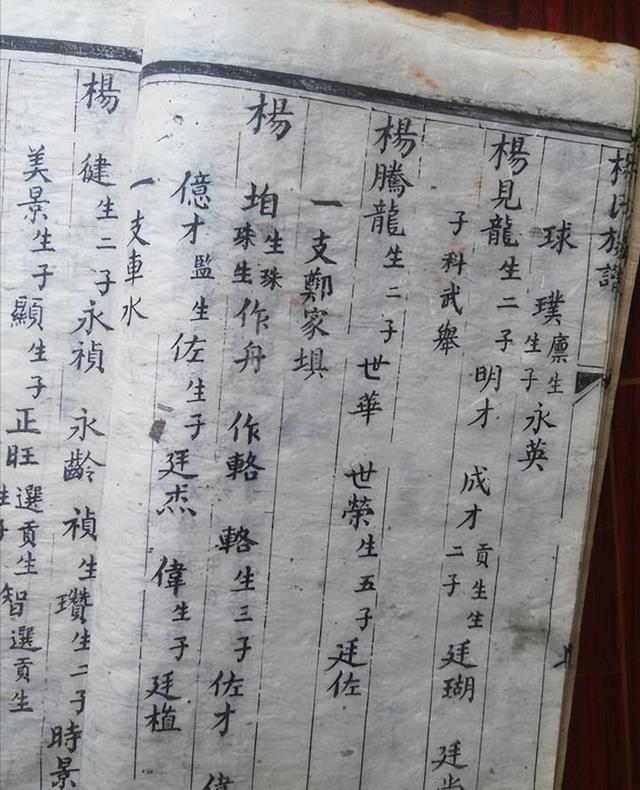 楊氏族譜
球 璞廩生生子永英
楊見龍生二子明才 成才貢生生二子廷瑚 廷尚
子科武舉
楊騰龍生二子世華 世榮生五子廷佐
一支鄭家埧
楊 珀生珠珠生作舟 作輅 輅生三子佐才 偉
億才監生 佐生子廷杰 偉生子廷植
一支車水
楊 健生二子永禎 永齡 禎生瓚生二子時景
美景生子顯生子正旺選貢生智選貢生